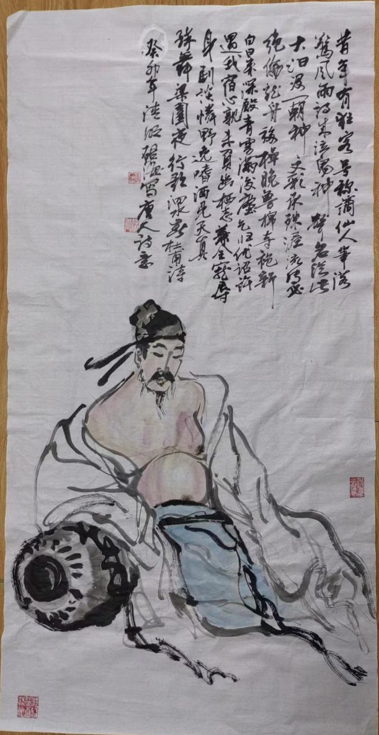 昔年有狂客号称谪仙人笔落
惊风雨诗成泣鬼神声名从此
大汩没一朝伸文彩承殊渥流传必
绝伦龙舟移棹晚兽锦夺袍新
白日来深殿青云满后尘乞归优诏许
遇我宿心亲未负幽栖志兼全宠辱
身剧谈怜野逸嗜酒见天真
醉舞梁园夜行歌泗水春杜甫诗
癸卯年写唐人诗意